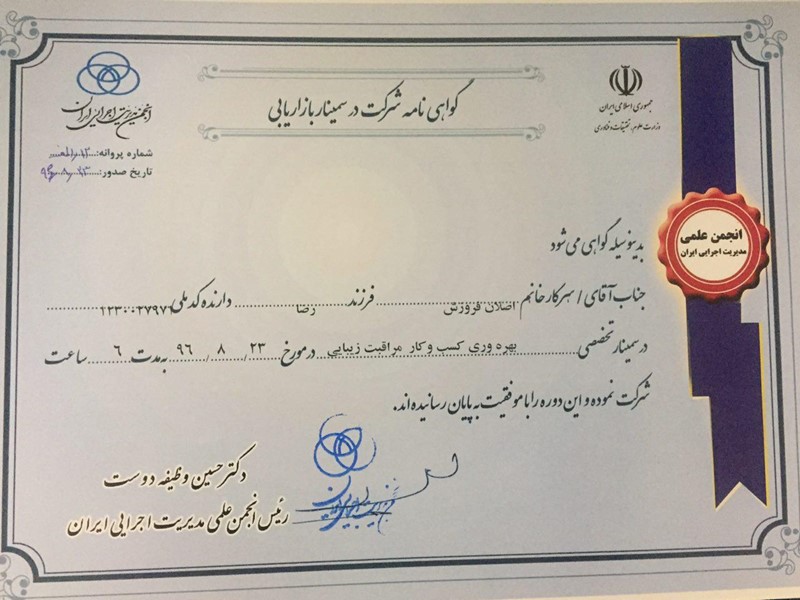 گواهی نامه شرکت در سمینار بازاریابی
جمهوری اسلامی ایران
وزارت علوم، تحقیقات و فناوری
انجمن مدیریت اجرایی ایران
شماره پروانه:
تاریخ صدور:
انجمن علمی
مدیریت اجرایی ایران
بدینوسیله گواهی می شود
جناب آقای / سرکار خانم اصلان فروزش فرزند رضا دارنده کد ملی
در سمینار تخصصی بهره وری کسب و کار مراقبت زیبایی در مورخ ۲۳ / ۸ / ۹۶ به مدت ۶ ساعت
شرکت نموده و این دوره را با موفقیت به پایان رسانیده اند.
دکتر حسین وظیفه دوست
رئیس انجمن علمی مدیریت اجرایی ایران